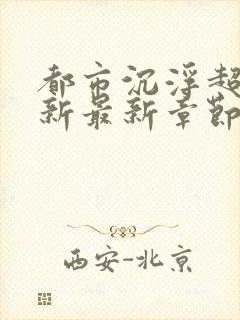 都市沉浮超
新最新章节
西安-北京